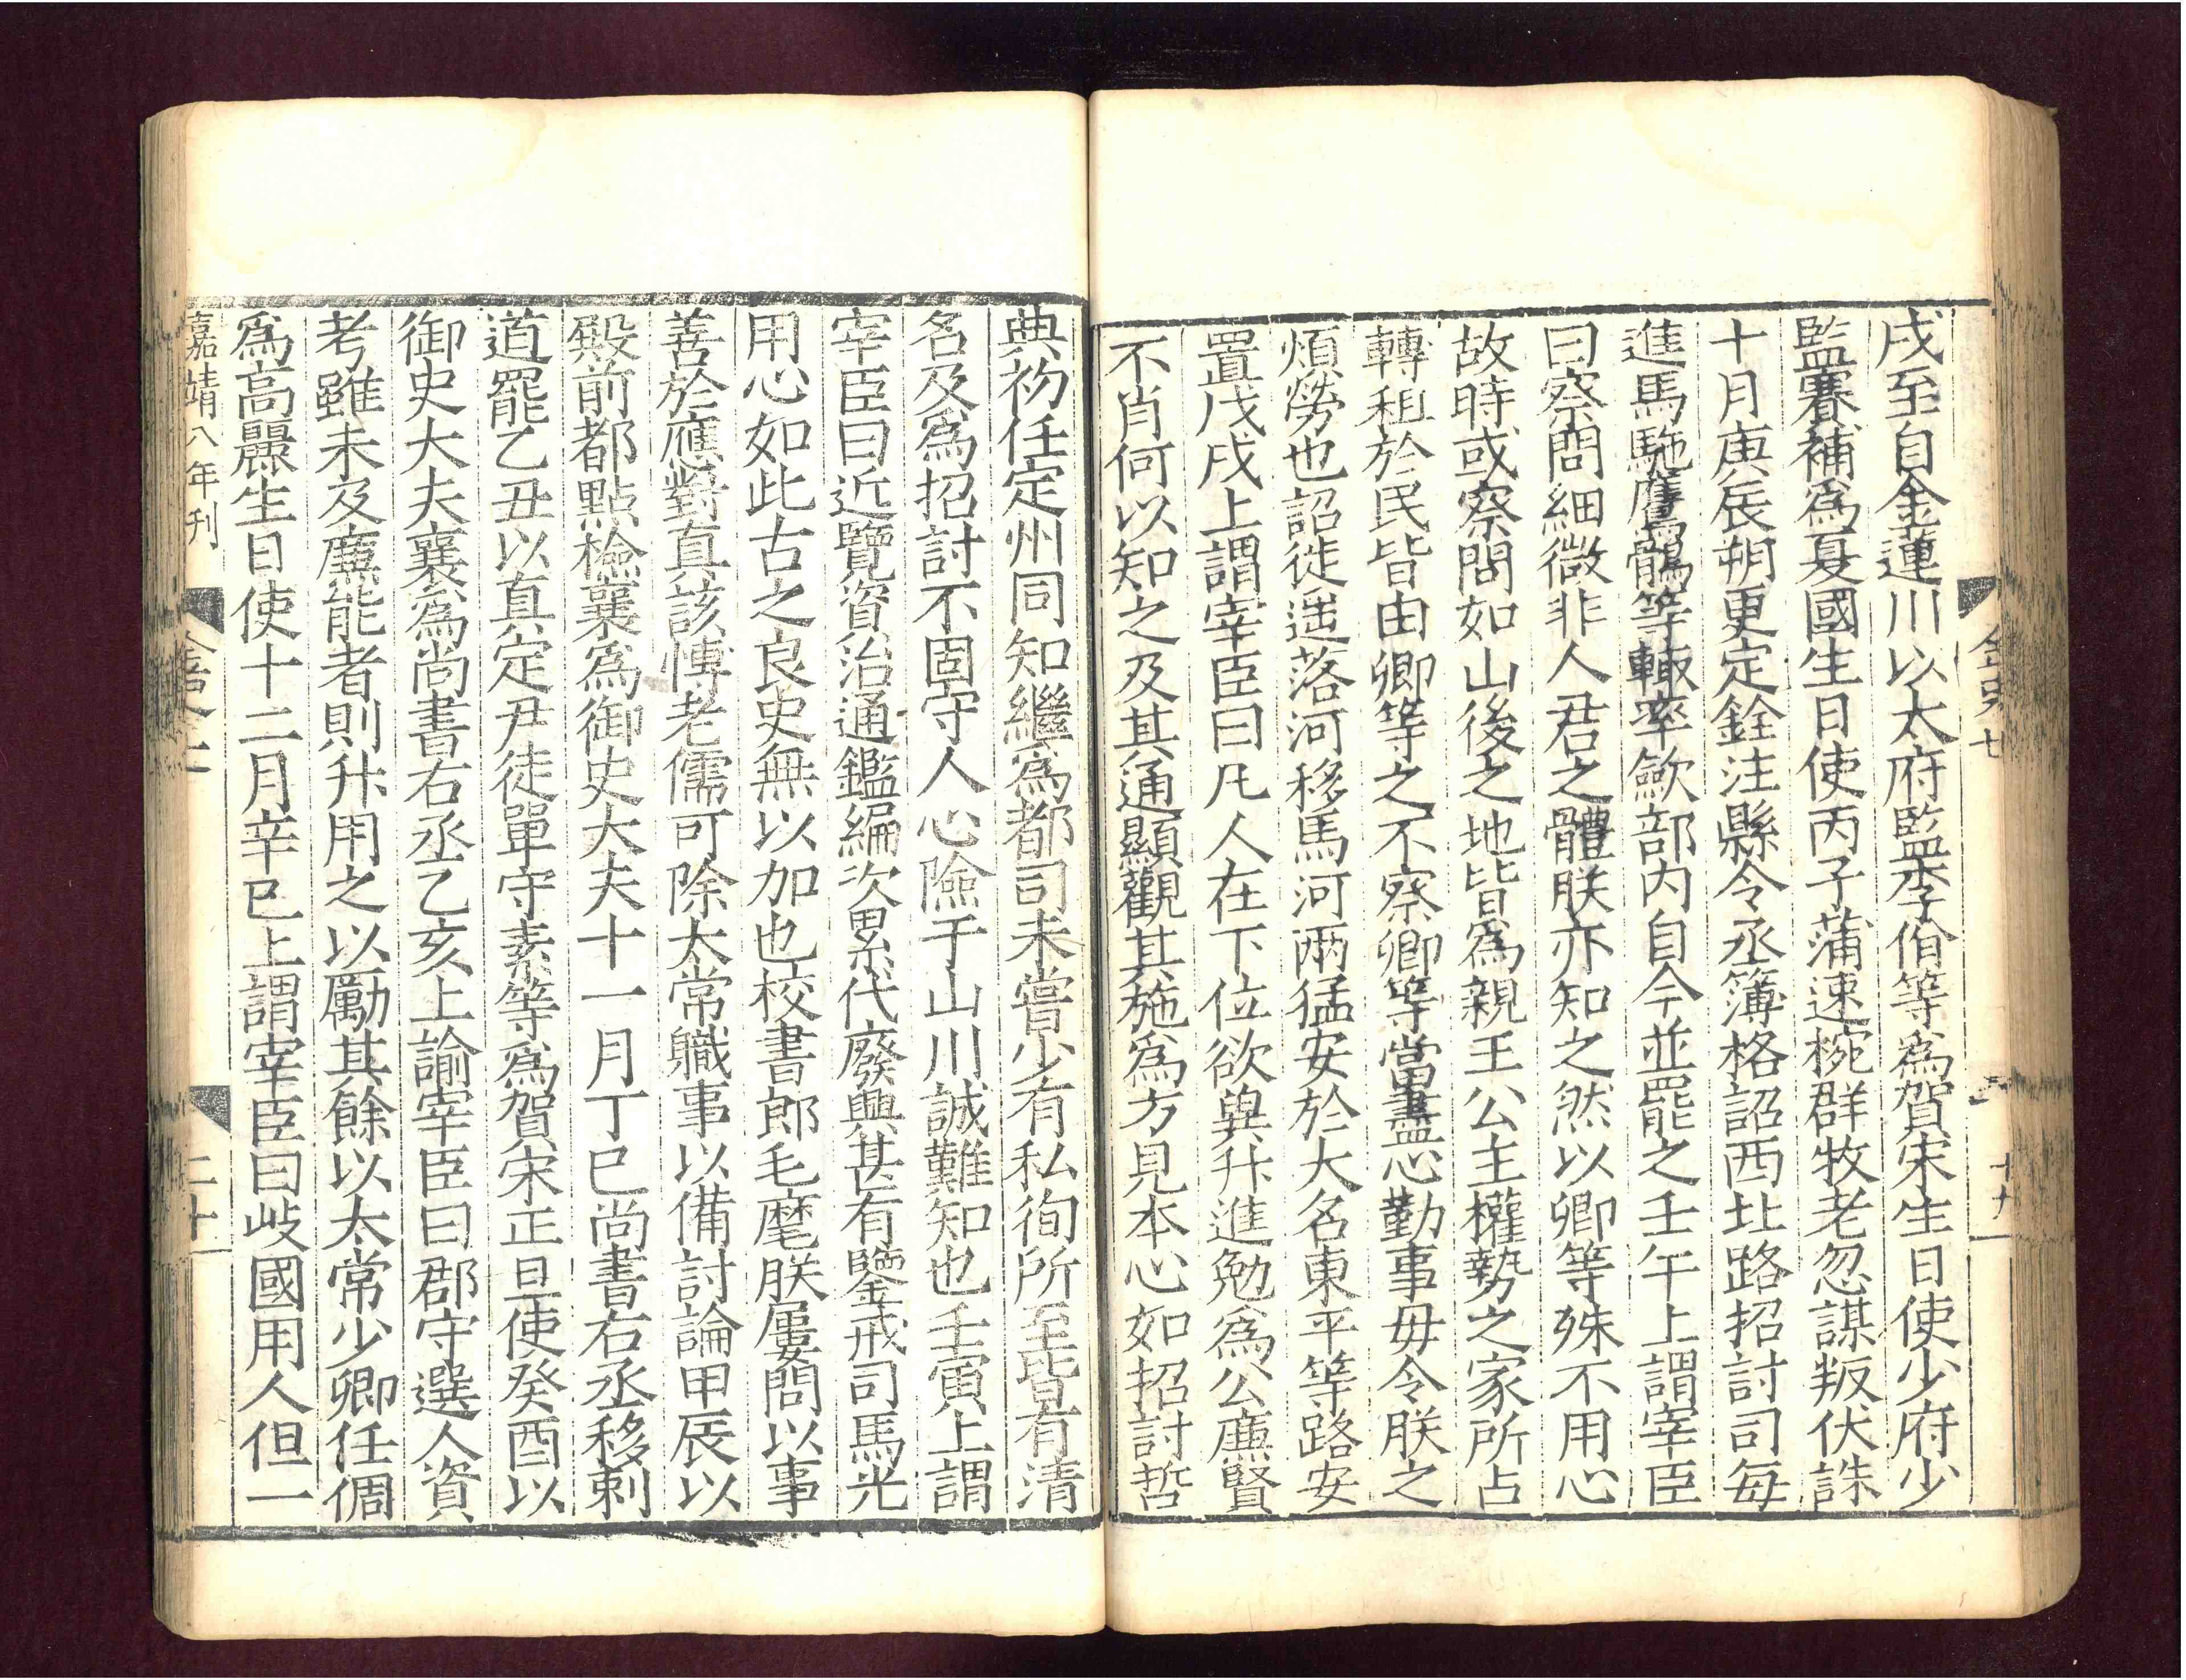 戌至自金蓮川以太府監李佾等爲賀宋生日使少府少
監賽補爲夏國生日使丙子蒲速椀群牧老忽謀叛伏誅
十月庚辰朔更定銓注縣令丞簿格詔西北路招討司每
進馬駞鷹鶻等輙率歛部内自今並罷之壬午上謂宰臣
曰察問細微非人君之體朕亦知之然以卿等殊不用心
故時或察問如山後之地皆爲親王公主權勢之家所占
轉租於民皆由卿等之不察卿等當盡心勤事毋令朕之
煩勞也詔徙遥落河移馬河兩猛安於大名東平等路安
置戊戌上謂宰臣曰凡人在下位欲兾升進勉爲公廉賢
不肖何以知之及其通顯觀其施爲方見本心如招討哲
典初任定州同知繼爲都司未嘗少有私徇所至皆有清
名及爲招討不固守人心險于山川誠難知也壬寅上謂
宰臣曰近覽資治通鑑編次累代廢興甚有鑒戒司馬光
用心如此古之良史無以加也校書郎毛麾朕屢問以事
善於應對真該博老儒可除太常職事以備討論甲辰以
殿前都點檢襄爲御史大夫十一月丁巳尚書右丞移剌
道罷乙丑以真定尹徒單守素等爲賀宋正旦使癸酉以
御史大夫襄爲尚書右丞乙亥上諭宰臣曰郡守選人資
考雖未及廉能者則升用之以勵其餘以太常少卿任倜
爲高麗生日使十二月辛巳上謂宰臣曰歧國用人但一
嘉靖八年刊
金史七
十九
二十